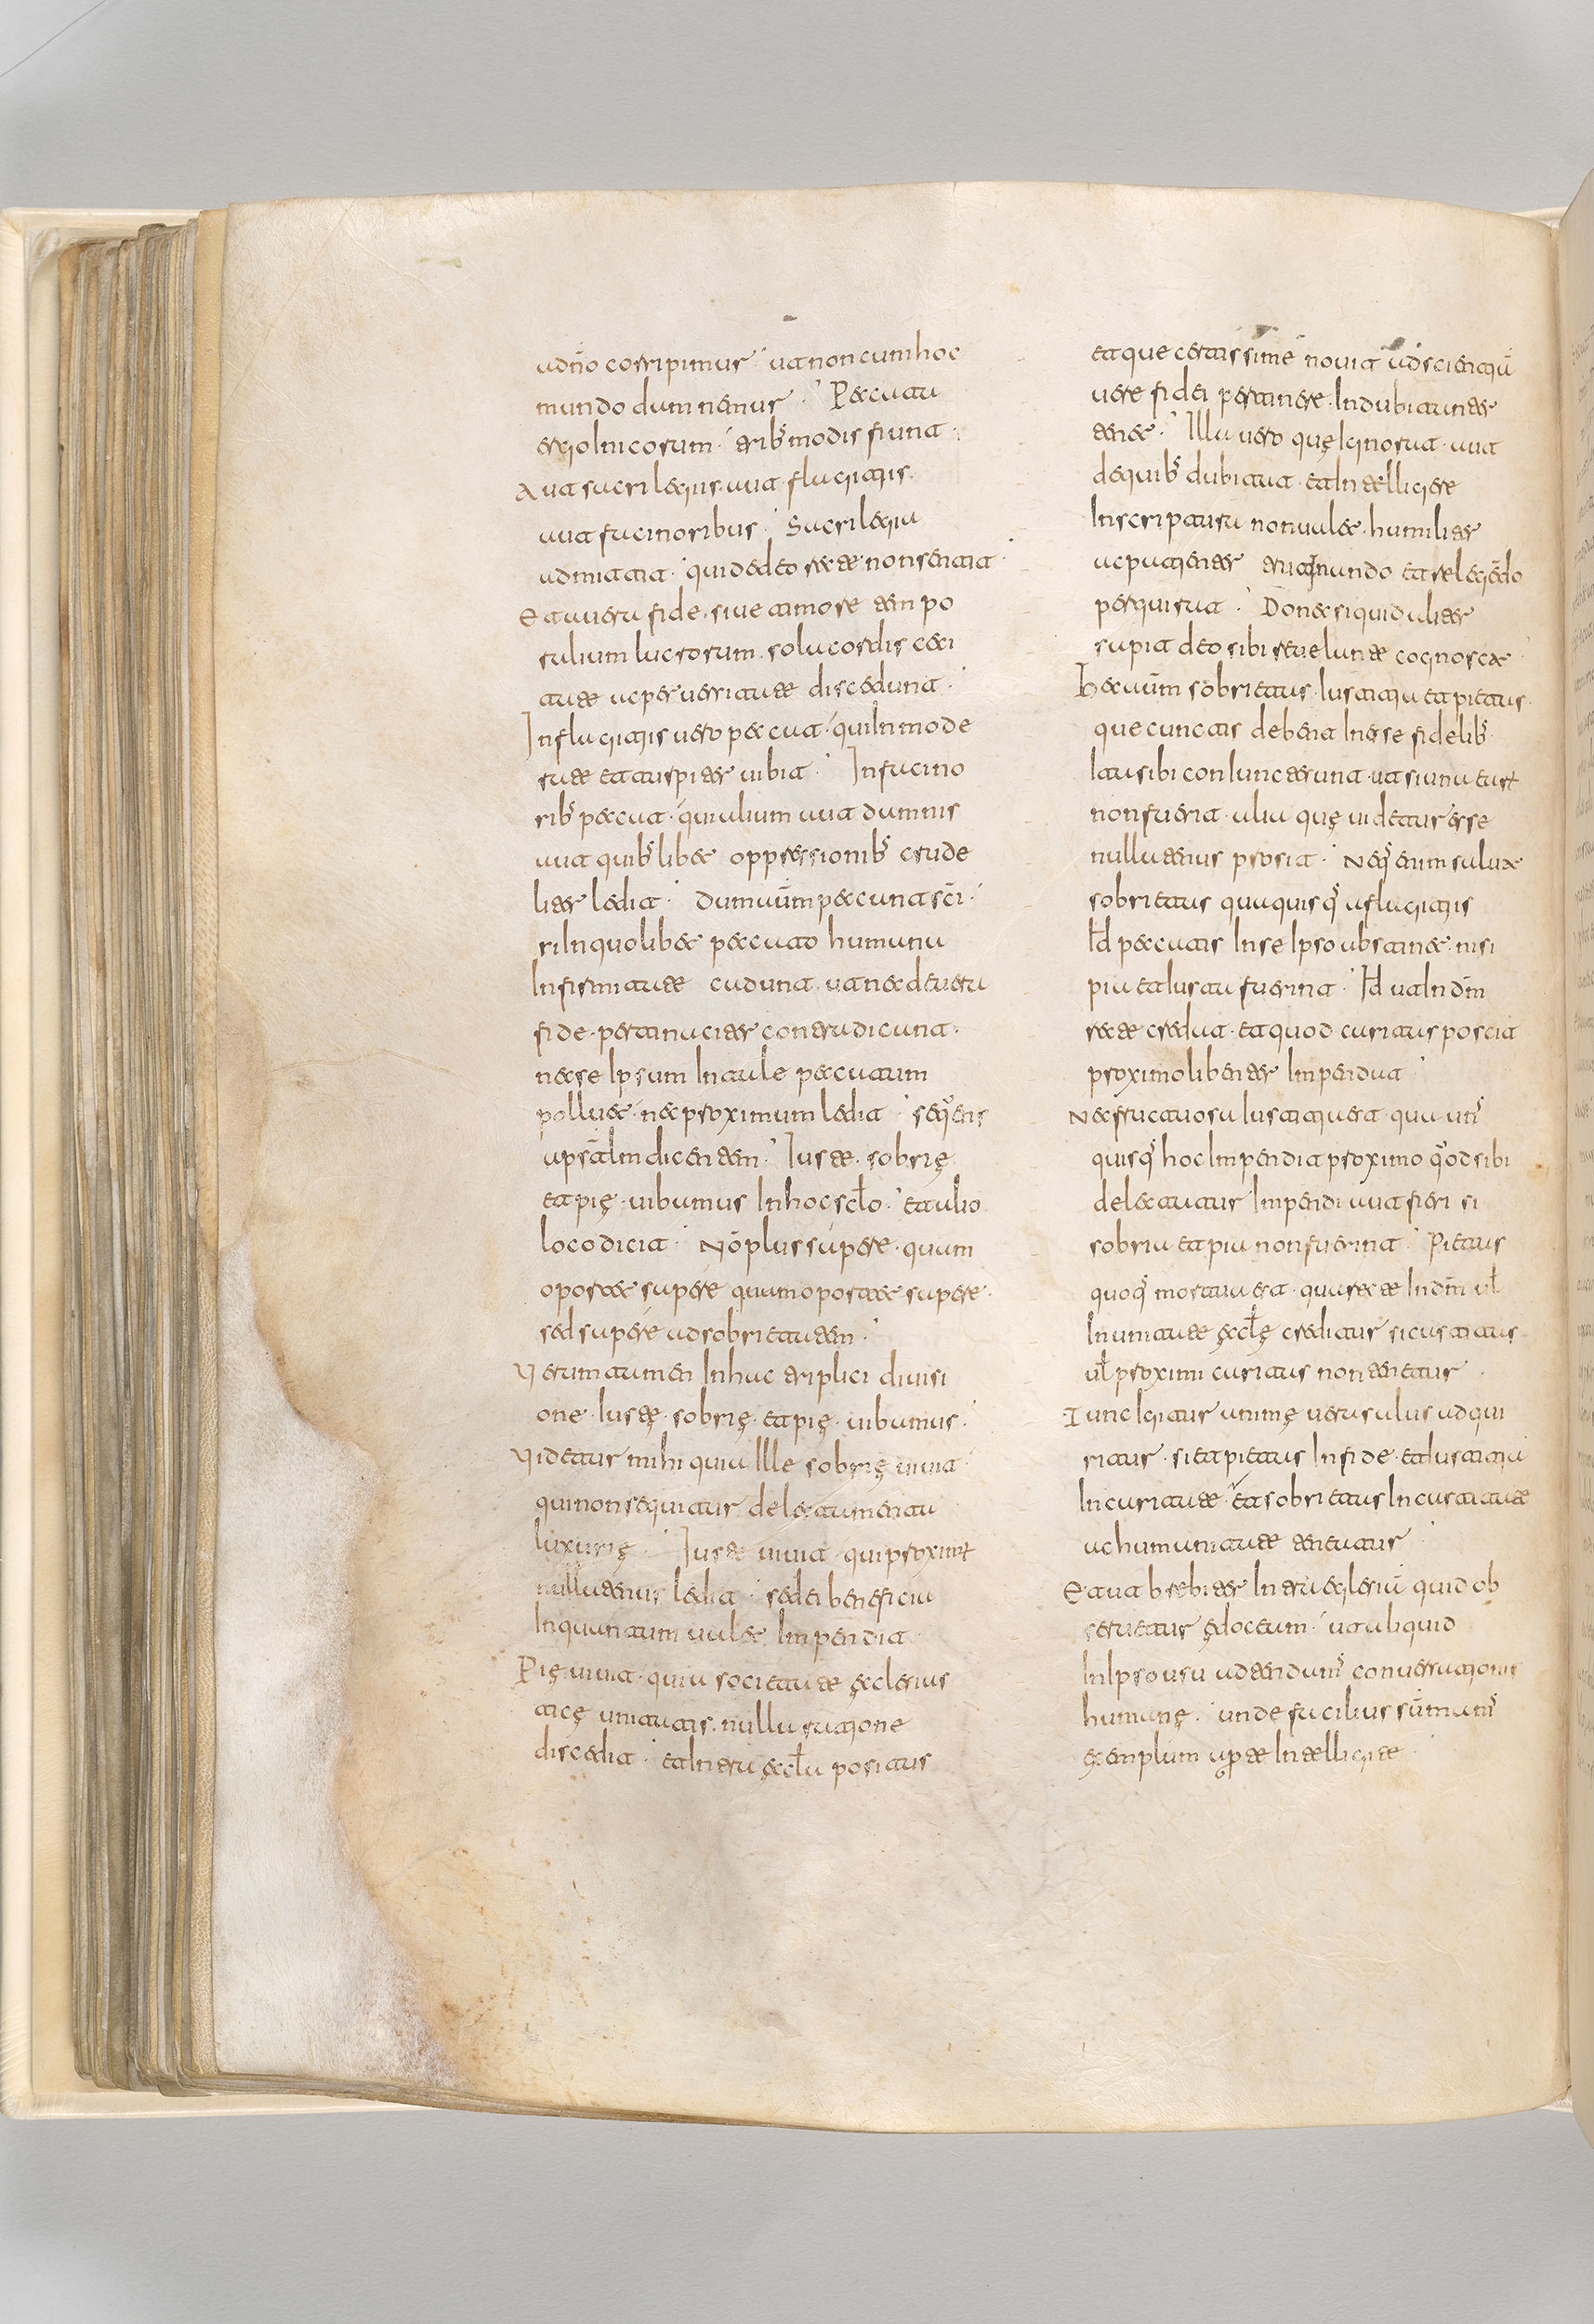 a dño corripimur · ut non cum hoc
mundo damnemur · Peccata
ergo Inicorum · trib; modis fiunt ·
Aut sacrilegiis · aut flagitiis ·
aut facinoribus · Sacrilegia
admittit · qui de deo recte non sentit ·
Et a uera fide · siue timore tem po
ralium lucrorum · sola cordis ceci
tate ac peruersitate discedunt ·
In flagitiis uero peccat · qui Inmode
rate et turpiter uibit · In facino
rib; peccat · qui alium aut damnis
aut quib;libet oppressionib; crude
liter ledit · Dum aūm peccant sc̄i ·
si In quolibet peccato humana
Infirmitate cadunt · ut nec de uera
fide · pertinaciter contradicunt ·
nec se Ipsum In tale peccatum
polluet · nec proximum ledit · seqens
apsālm dicentem · Iuste · sobrię
et pię · uibamus In hoc scło · Et alio
loco dicit · Nō plus sapere · quam
oportet sapere quam oportet sapere ·
sed sapere ad sobrietatem ·
Verumtamen In hac triplici diuisi
one · Iustę · sobrię · et pię · uibamus ·
Videtur mihi quia Ille sobrię uiuit ·
qui non sequitur delectamenta
luxurię · Iuste uiuit · qui proximum
nullatenus ledit · sed ei beneficia
In quantum ualet Impendit
Pię uiuit · quia societate ęcclesias
ticę unitatis · nulla ratione
discedit · et Intra ęccła positus
et que certissime nouit ad scientiā
uere fidei pertinere · Indubitanter
tenet · Illa uero quę Ignorat · aut
de quib; dubitat · et Intelligere
In scriptura non ualet · humiliter
ac patienter et relegēdo
perquirat · Donec si quid aliter
sapit deo sibi reuelante cognoscat
Hec aūm sobrietas · Iustitia et pietas ·
que cunctis debent Inesse fidelib;
Ita sibi con Iuncte sunt · ut si una earum
non fuerit · alia quę uidetur esse
nullatenus prosit · Neq; enim saluat
sobrietas qua quisq; a flagitiis
Id peccatis In se Ipso abstinet · nisi
pia et Iusta fuerint · Id ut In dm̄
recte credat · et quod caritas poscit
proximo libenter Impendat
Nec fructuosa Iustitia erit · qua un;
quisq; hoc Impendit proximo qod sibi
delectatur Impendi aut fieri si
sobria et pia non fuerint · Pietas
quoq; mortua est · qua recte In dm̄ uł
In unitate ęccłę creditur si castitas
uł proximi caritas non tenetur ·
Tunc Igitur animę uera salus adqui
ritur · si et pietas In fide · et Iustitia
In caritate · et sobrietas In castitate
ac humanitate teneatur ·
Et ut brebiter Intra eglesiā quid ob
seruetur ędoceam · ut aliquid
In Ipso usu adtendam; conuersationis
humanę · unde facilius sūmam;
ęxemplum aperte Intelligite